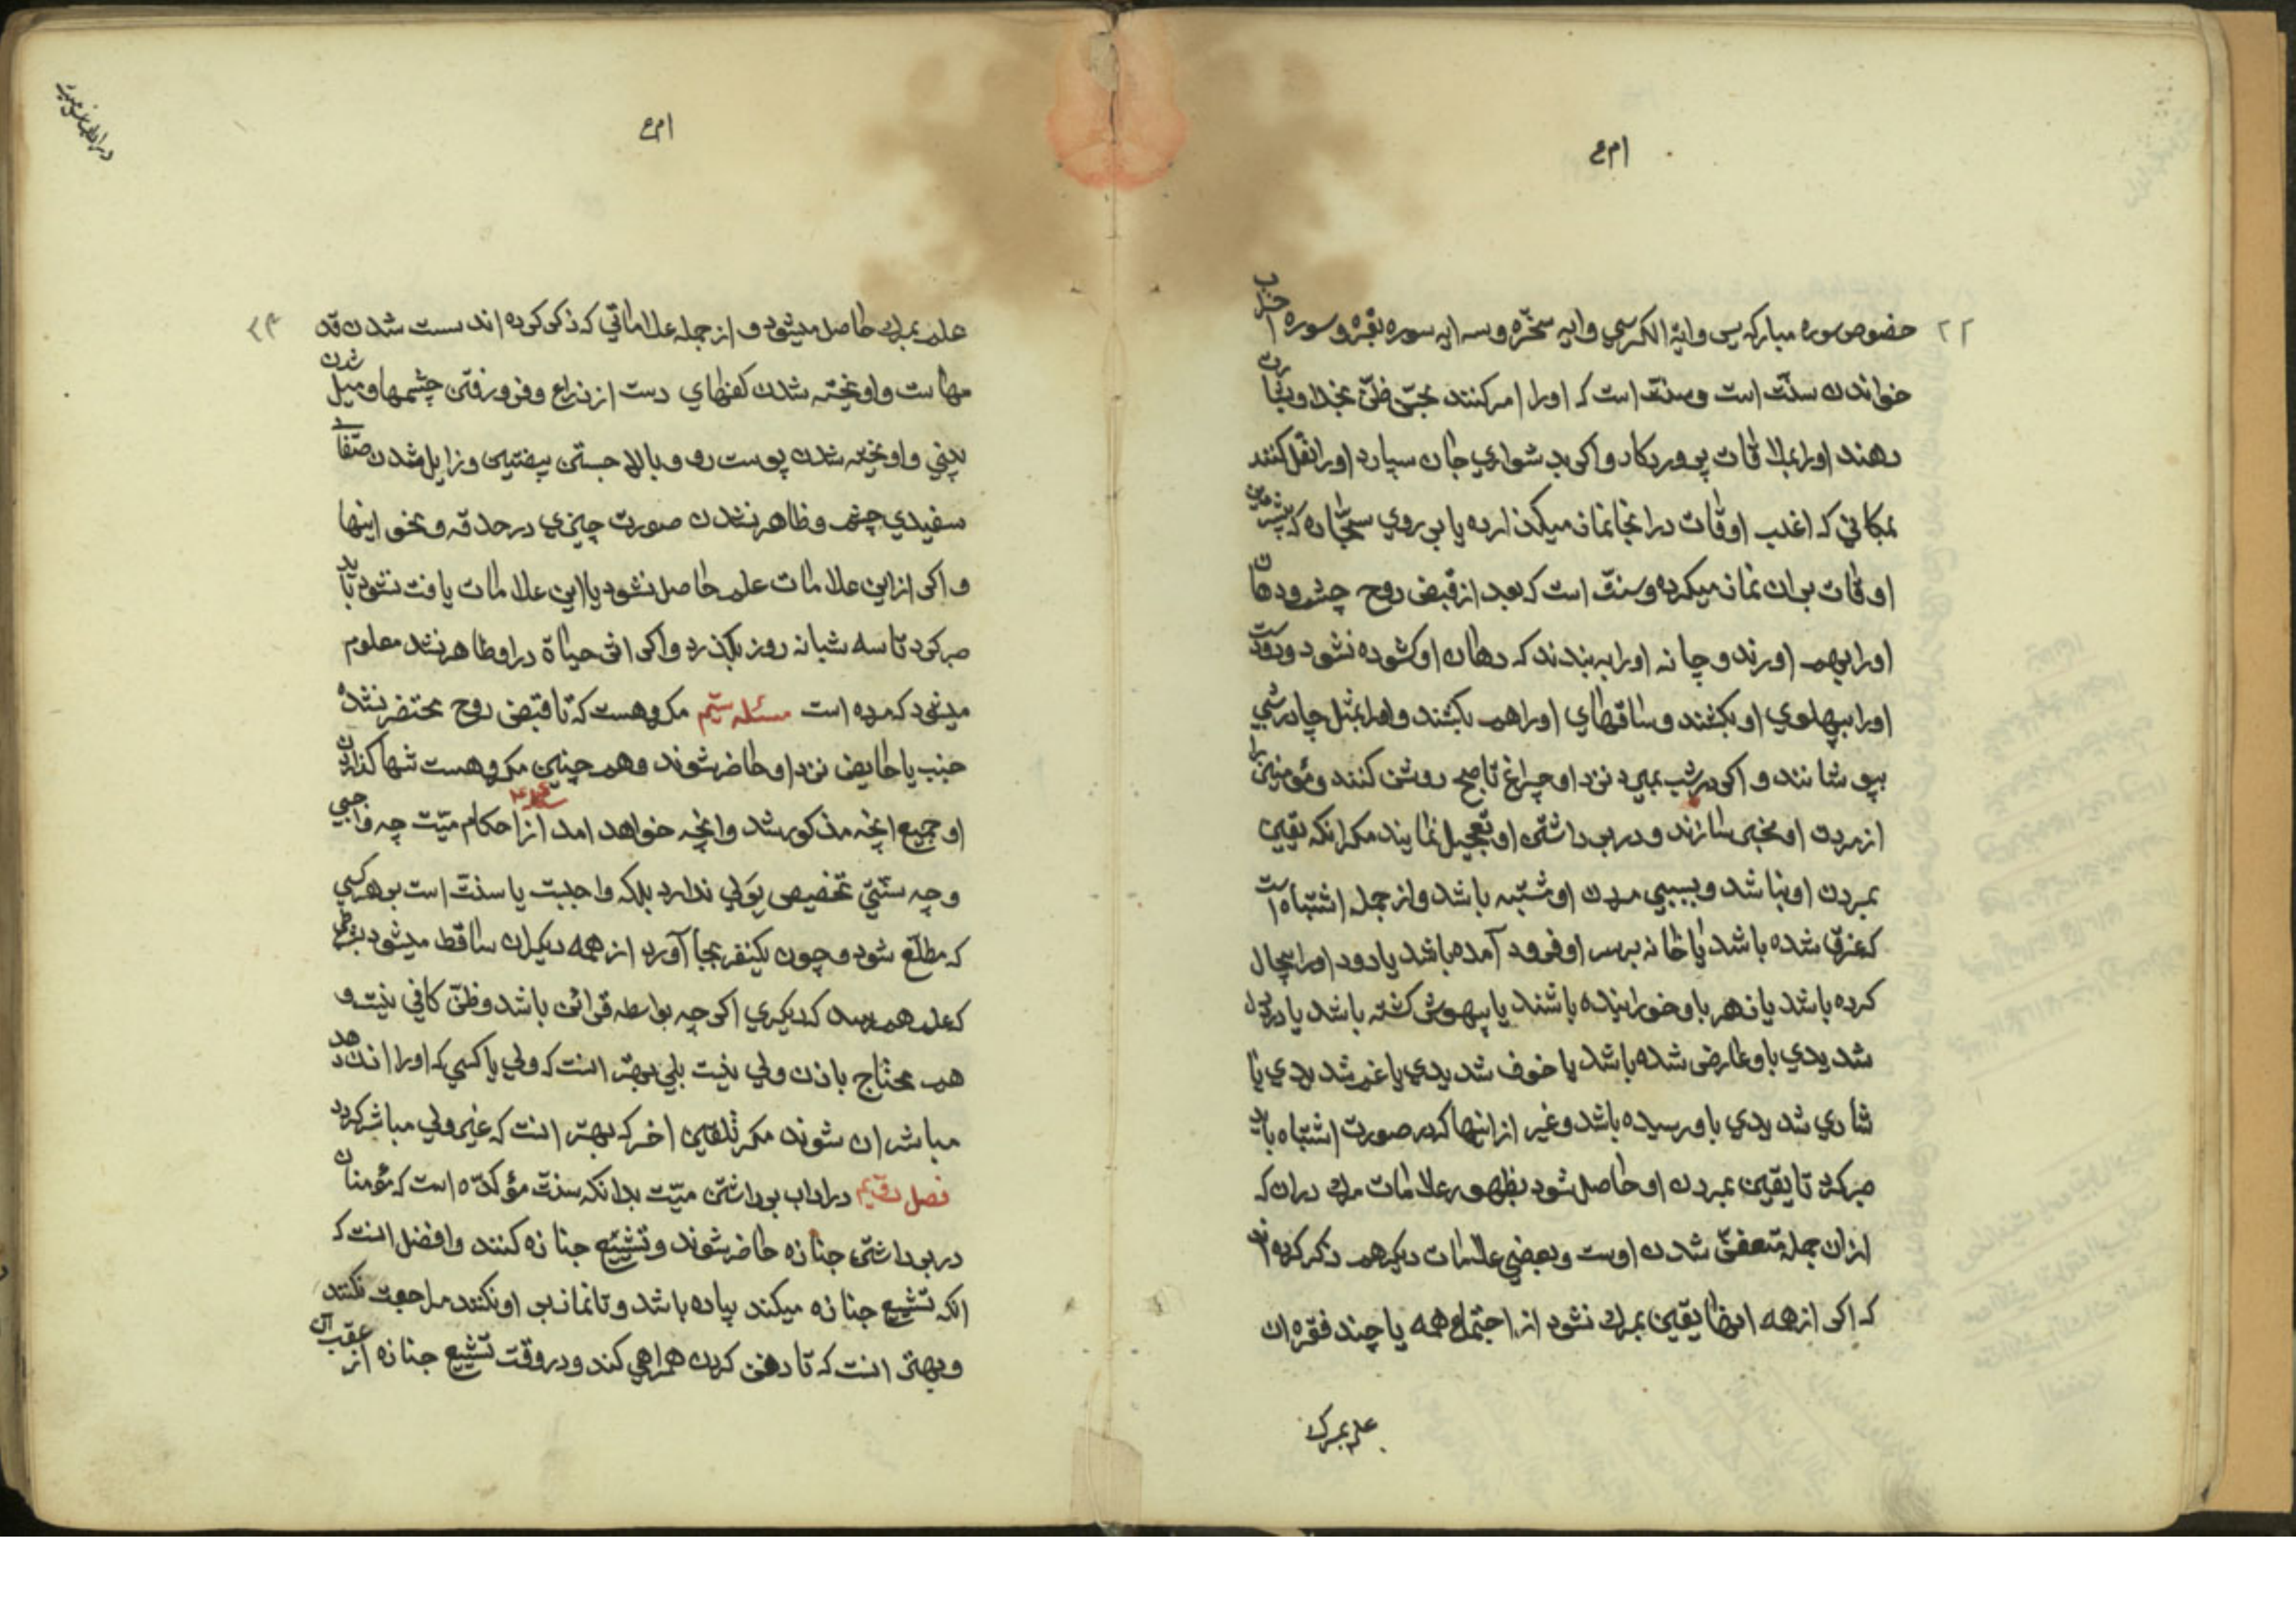 خصوص سوره مبارکه یس وایة الکرسي وایه سخّره وسه ایه سوره بقره وسوره احزاب
خواندن سنّت است وسنّت است که اورا امر کنند بحسن ظنّ بخدا وبشارت
دهند اورا بملاقات پروردکار واکر بدشواري جان سپارد اورا نقل کنند
بمکاني که اغلب اوقات درانجا نماز میکذارده یا بر روي سجّاده که بیشترین
اوقات بران نماز میکرده وسنّت است که بعد از قبض روح چشم ودهان
اورا بهم اورند وچانه اورا به بندند که دهان او کشوده نشود ودودست
اورا بپهلوي او بکشند وساقهاي اورا هم بکشند واورا بمثل چادرشبي
بپوشانند واکر در شب بمیرد نزد او چراغ تا صبح روشن کنند ومؤمنین را
از مردن او مخبر سازند ودر برداشتن او تعجیل نمایند مکر انکه یقین
بمردن او نباشد وبسببي مردن او مشتبه باشد واز جمله اشتباه است
که غرق شده باشد یا خانه برسر او فرود آمده باشد یا دود اورا بیحال
کرده باشد یا زهر باو خورانیده باشند یا بیهوش کشته باشد یا درد دل
شدیدي باو عارض شده باشد یا خوف شدیدي یا غم شدیدي یا
شادي شدیدي باو رسیده باشد وغیر از اینها که در صورت اشتباه باید
صبر کرد تا یقین بمردن او حاصل شود بظهور علامات مرك دران که
ازان جمله متعفّن شدن اوست وبعضي علامات دیکر هم ذکر کرده اند
که اکر از همه انها یقین بمرك نشود از اجتماع همه یا چند فقره ان
علم بمرك
علم بمرك حاصل میشود واز جمله علاماتي که ذکر کرده اند سست شدن قد
مهاست واویخته شدن کفهاي دست از ذراع وفرو رفتن چشمها ومیل شدن
بیني واویخته شدن پوست رو وبالا جستن بیضتین وزایل شدن صفاي
سفیدي چشم وظاهر نشدن صورت چیزي در حدقه ونحو اینها
واکر از این علامات علم حاصل نشود یا این علامات یافت نشود باید
صبر کرد تا سه شبانه روز بکذرد واکر اثر حیاة در او ظاهر نشد معلوم
میشود که مرده است مسئله ستیم مکروهست که تا قبض روح محتضر نشده
جنب یا حایض نزد او حاضر شوند وهم چنین مکروهست تنها کذاردن
او جمیع انچه مذکور شد وانچه خواهد امد از احکام میّت چه واجبي
وچه سنّتي تخصیص بولي ندارد بلکه واجبت یا سنّت است بر هر کسي
که مطلّع شود وچون یکنفر بجا آورد از همه دیکران ساقط میشود بشرطي
که علم هم رسد که دیکري اکر چه بواسطه قرائن باشد وظنّ کافي نیست و
هم محتاج باذن ولي نیست بلي بهتر انست که ولي یا کسي که اورا اذن دهد
مباشر ان شوند مکر تلقین اخر که بهتر انست که غیر ولي مباشر کردد
فصل در اداب برداشتن میّت بدانکه سنّت مؤکدّه است که مؤمنان
در برداشتن جنازه حاضر شوند وتشییع جنازه کنند وافضل انست که
انکه تشییع جنازه میکند پیاده باشد وتا نماز بر او نکنند مراجعت نکنند
وبهتر انست که تا دفن کردن همراهي کند ودر وقت تشییع جنازه از عقب آن